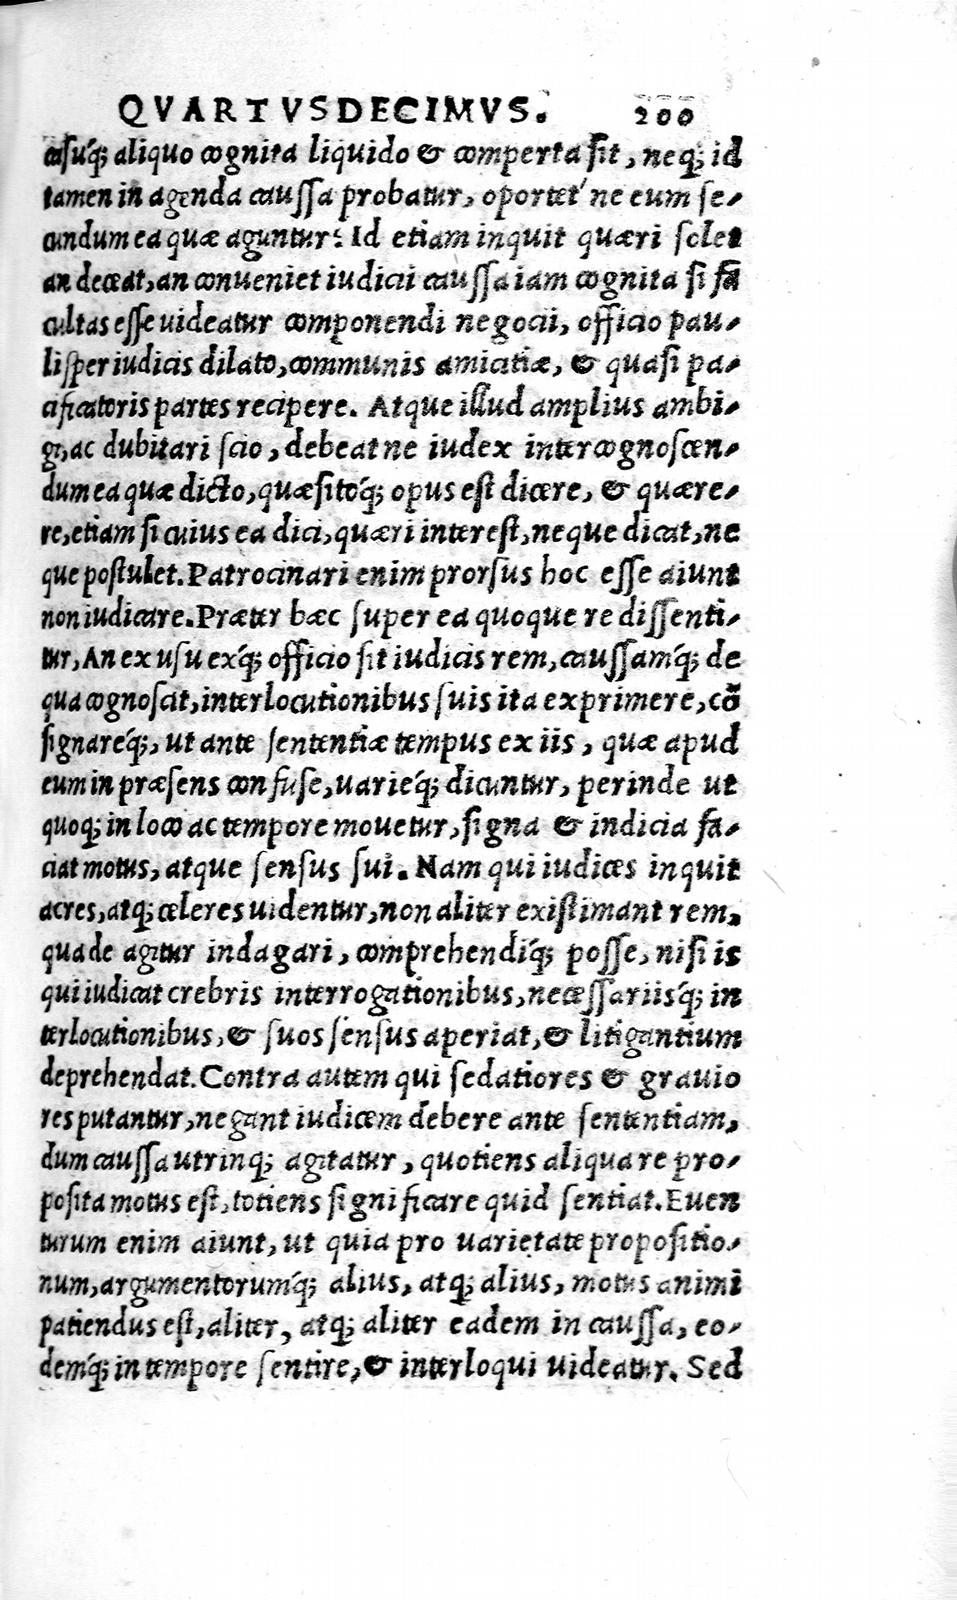 QVARTVSDECIMVS. 200
casuq́; aliquo cognita liquido & comperta sit, neq; id
tamen in agenda caussa probatur, oportet' ne eum se-
cundum ea quæ aguntur: Id etiam inquit quæri solet
an deceat, an conveniet iudici caussa iam cognita si fa
cultas esse uideatur componendi negocii, officio pau-
lisper iudicis dilato, communis amicitiæ, & quasi pa-
cificatoris partes recipere. Atque illud amplius ambi-
gi, ac dubitari scio, debeat ne iudex inter cognoscen-
dum ea quæ dicto, quæsitoq́; opus est dicere, & quære-
re, etiam si cuius ea dici, quæri interest, neque dicat, ne
que postulet. Patrocinari enim prorsus hoc esse aiunt
non iudicare. Præter hæc super ea quoque re dissenti-
tur, An ex usu exq́; officio sit iudicis rem, caussamq́; de
qua cognoscit, interlocutionibus suis ita exprimere, cō
signareq́;, ut ante sententiæ tempus ex iis, quæ apud
eum in præsens confuse, uarieq́; dicuntur, perinde ut
quoq; in loco ac tempore mouetur, signa & indicia fa-
ciat motus, atque sensus sui. Nam qui iudices inquit
acres, atq; celeres uidentur, non aliter existimant rem,
qua de agitur indagari, comprehendiq́; posse, nisi is
qui iudicat crebris interrogationibus, necessariisq́; in
terlocutionibus, & suos sensus aperiat, & litigantium
deprehendat. Contra autem qui sedatiores & grauio
res putantur, negant iudicem debere ante sententiam,
dum caussa utrinq; agitatur, quotiens aliqua re pro-
posita motus est, totiens significare quid sentiat. Euen
turum enim aiunt, ut quia pro uarietate propositio-
num, argumentorumq́; alius, atq; alius, motus animi
patiendus est, aliter, atq; aliter eadem in caussa, eo-
demq́; in tempore sentire, & interloqui uideatur. Sed